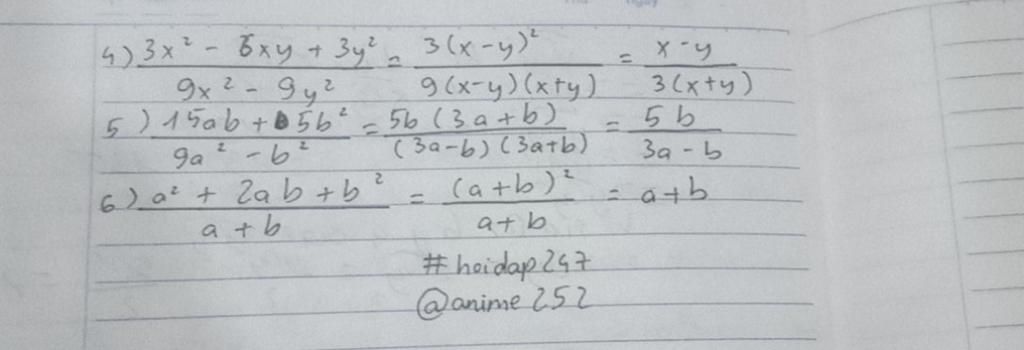 4) 3x² - 6xy + 3y² / 9x² - 9y² = 3(x-y)² / 9(x-y)(x+y) = x-y / 3(x+y)
5) 15ab + 5b² / 9a² - b² = 5b(3a+b) / (3a-b)(3a+b) = 5b / 3a-b
6) a² + 2ab + b² / a+b = (a+b)² / a+b = a+b
#hoidap247
@anime252